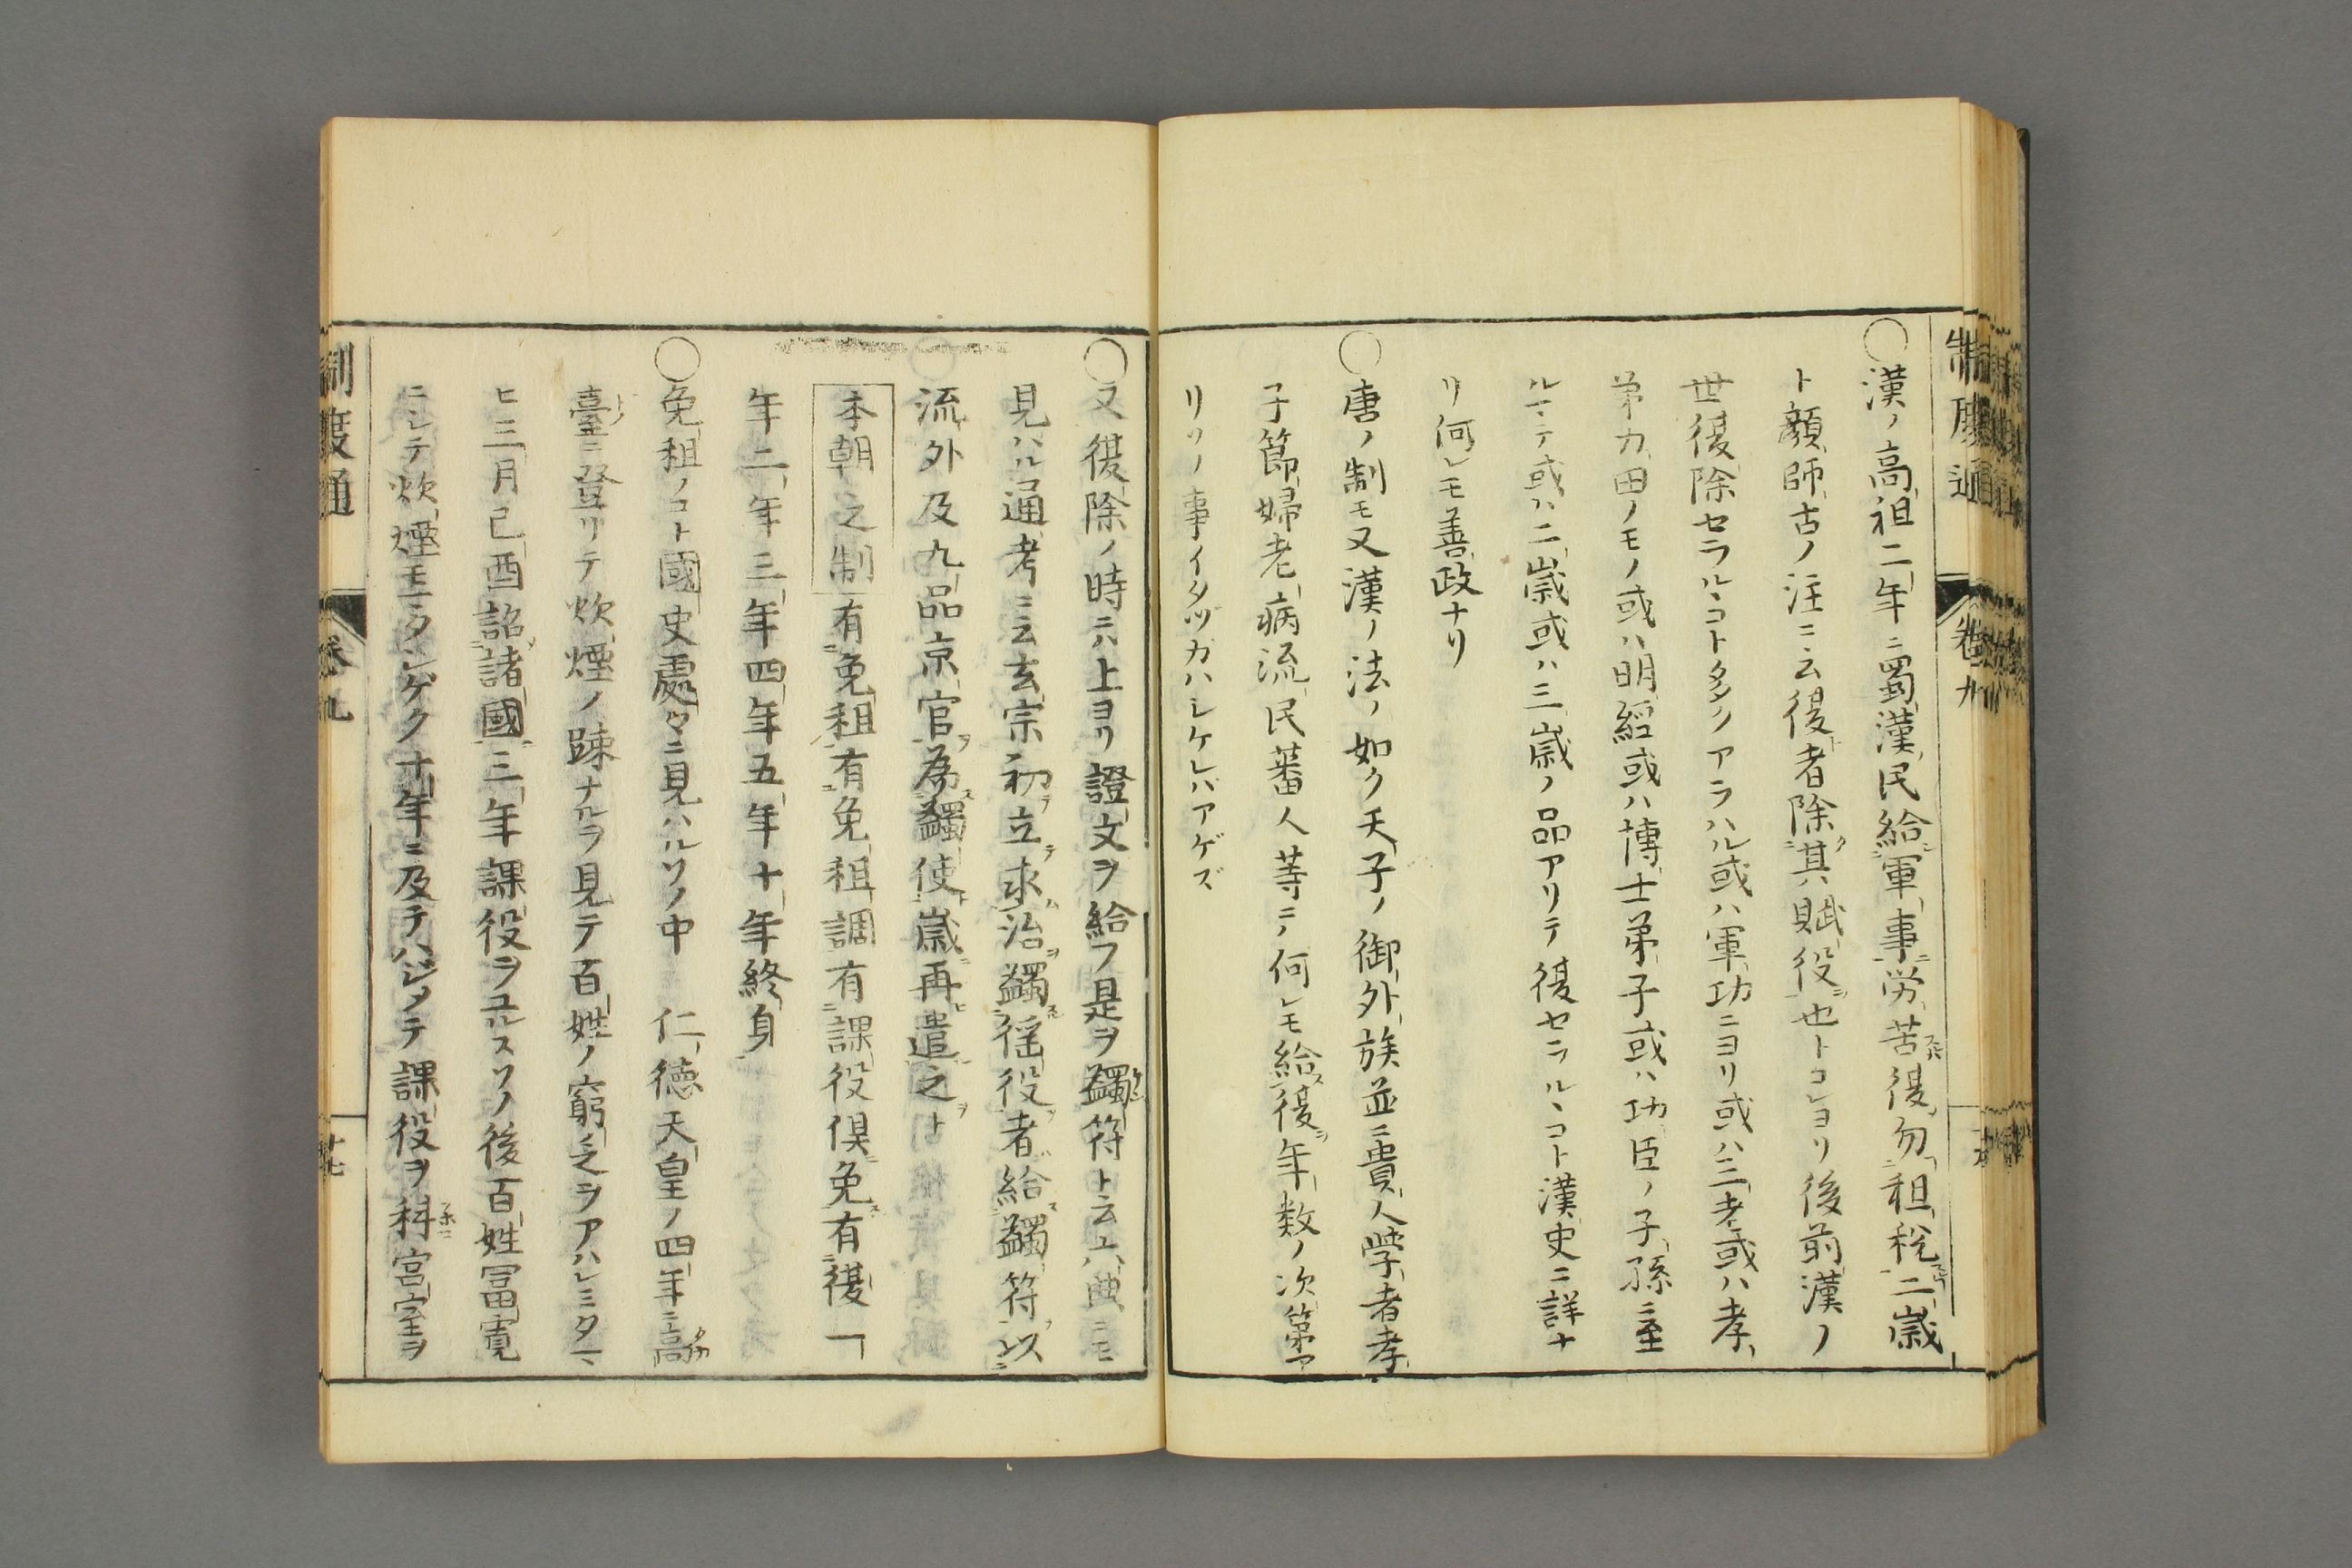 制度通 卷九
○漢ノ高祖二年ニ蜀漢民給軍事労苦復勿租税二歳
ト顔師古ノ注ニ云復者除其賦役也トコレヨリ後前漢ノ
世復除セラルヽコト多クアラハル或ハ軍功ニヨリ或ハ三老或ハ孝
弟力田ノモノ或ハ明経或ハ博士弟子或ハ功臣ノ子孫ニ至
ルマテ或ハ二歳或ハ三歳ノ品アリテ復セラルヽコト漢史ニ詳ナ
リ何レモ善政ナリ
○唐ノ制モ又漢ノ法ノ如ク天子ノ御外族並ニ貴人學者孝
子節婦老病流民蕃人等ニテ何レモ給復年数ノ次第ア
リソノ事イタヅカハシケレバアゲズ
○又復除ノ時ニハ上ヨリ證文ヲ給フ是ヲ蠲符ト云六典ニモ
見ハル通考ニ云玄宗初立求治蠲徭役者給蠲符以
流外及九品京官為蠲使歳再遣之ト
本朝之制有免租有免租調有課役倶免有復一
年二年三年四年五年十年終身
○免租ノコト國史處々ニ見ハルソノ中 仁徳天皇ノ四年ニ高
臺ニ登リテ炊煙ノ踈ナルヲ見テ百姓ノ窮乏ヲアハレミタマ
ヒ三月己酉詔諸國三年課役ヲユルスソノ後百姓冨寛
ニシテ炊煙モシゲク十年ニ及テハジメテ課役ヲ科宮室ヲ
制度通 卷九 廿七